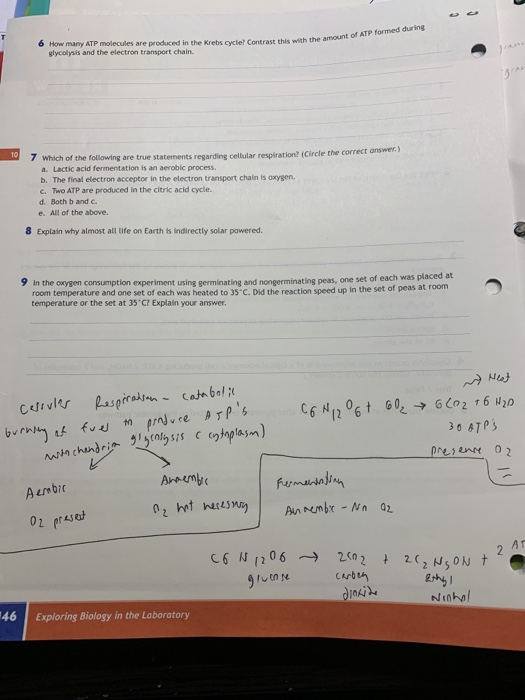 6 How many ATP molecules are produced in the Krebs cycle? Contrast this with the amount of ATP formed during
glycolysis and the electron transport chain.
10
7 Which of the following are true statements regarding cellular respiration? (Circle the correct answer.)
a. Lactic acid fermentation is an aerobic process.
b. The final electron acceptor in the electron transport chain is oxygen.
c. Two ATP are produced in the citric acid cycle.
d. Both b and c.
e. All of the above.
8 Explain why almost all life on Earth is indirectly solar powered.
9 In the oxygen consumption experiment using germinating and nongerminating peas, one set of each was placed at
room temperature and one set of each was heated to 35°C. Did the reaction speed up in the set of peas at room
temperature or the set at 35°C? Explain your answer.
Heat
Respiration - catabolic
C6 H12 O6 + 6O2 → 6CO2 + 6 H2O
burning of fuel to produce ATP's
30 ATP's
mitochondria glycolysis (cytoplasm)
presence O2
Aerobic
Anaerobic
Fermentation
O2 present
O2 not necessary
Anaerobic - No O2
C6 H12O6 → 2CO2 + 2C2 H5OH + 2
glucose carbon Ethyl
dioxide Alcohol
146 Exploring Biology in the Laboratory